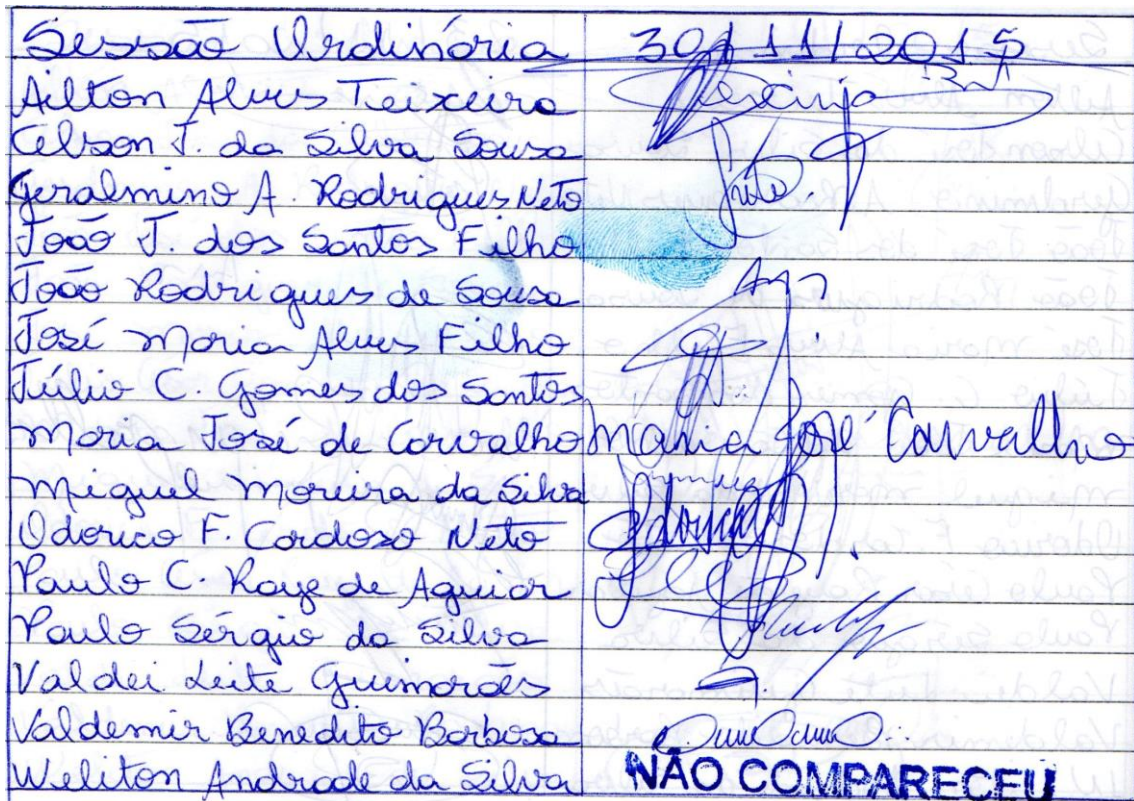 Sessão Ordinária 30/11/2015
Ailton Alves Teixeira
Celson J. da Silva Sousa
Geralmino A. Rodrigues Neto
João J. dos Santos Filho
João Rodrigues de Sousa
José Maria Alves Filho
Júlio C. Gomes dos Santos
Maria José de Carvalho Maria José Carvalho
Miguel Moreira da Silva
Odorico F. Cardoso Neto Odorico
Paulo C. Raye de Aguiar
Paulo Sérgio da Silva
Valdei Leite Guimarães
Valdemir Benedito Barbosa
Weliton Andrade da Silva NÃO COMPARECEU